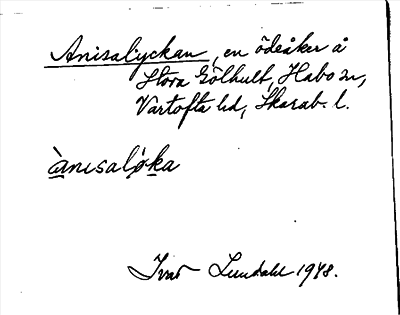 Anisalyckan, en ödeåker å
Stora Gölhult, Habo sn,
Vartofta hd, Skarab. l.
ànısalø̀ka
Ivar Lundahl 1948.